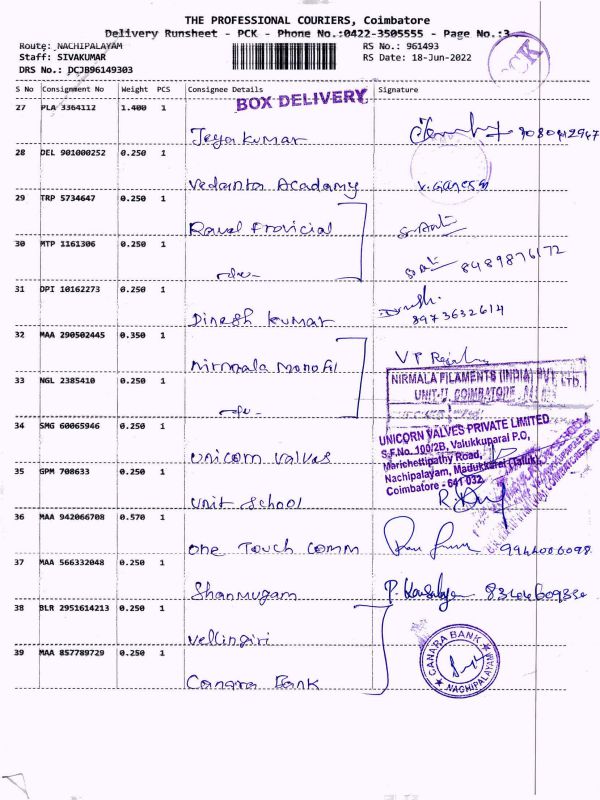 THE PROFESSIONAL COURIERS, Coimbatore
Delivery Runsheet - PCK - Phone No.:0422-3505555 - Page No.:3
Route: NACHIPALAYAM RS No.: 961493
Staff: SIVAKUMAR RS Date: 18-Jun-2022
DRS No.: DCJB96149303
PCK
S No Consignment No Weight PCS Consignee Details Signature
BOX DELIVERY
27 PLA 3364112 1.400 1
Jeya kumar 9080412947
28 DEL 901000252 0.250 1
Vedanta Academy V. Ganesan
29 TRP 5734647 0.250 1
30 MTP 1161306 0.250 1
8489876172
31 DPI 10162273 0.250 1
Dinesh kumar 8973632614
32 MAA 290502445 0.350 1
Nirmala
NIRMALA FILAMENTS (INDIA) PVT. LTD.
UNIT-II, COIMBATORE
33 NGL 2385410 0.250 1
34 SMG 60065946 0.250 1
unicorn valves
UNICORN VALVES PRIVATE LIMITED
S.F.No. 100/2B, Valukkuparai P.O,
Marichettipathy Road,
Nachipalayam, Madukkarai (Taluk),
Coimbatore - 641 032.
35 GPM 708633 0.250 1
unit school
36 MAA 942066708 0.570 1
one Touch comm 9944006098
37 MAA 566332048 0.250 1
Shanmugam
38 BLR 2951614213 0.250 1
vellingiri
39 MAA 857789729 0.250 1
Canara Bank
CANARA BANK
NACHIPALAYAM